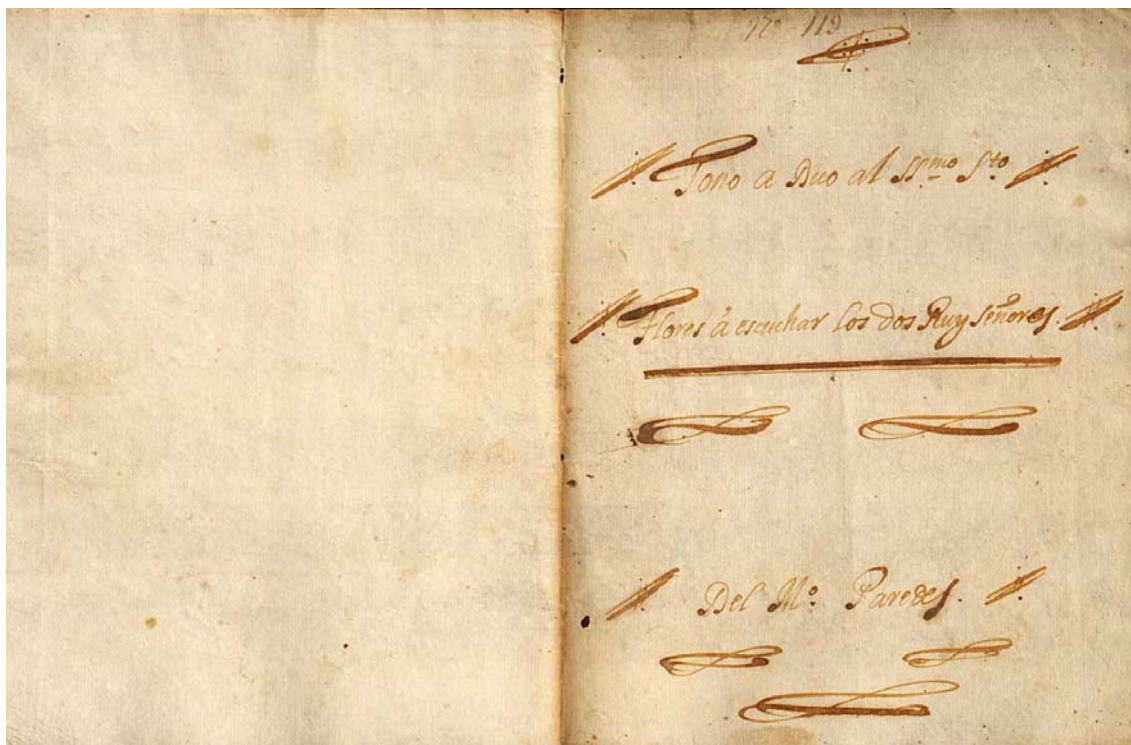 nº 119
Tono a Duo al SS.mo S.to
Flores á escuchar los dos Ruy señores.
Del Mº. Paredes.